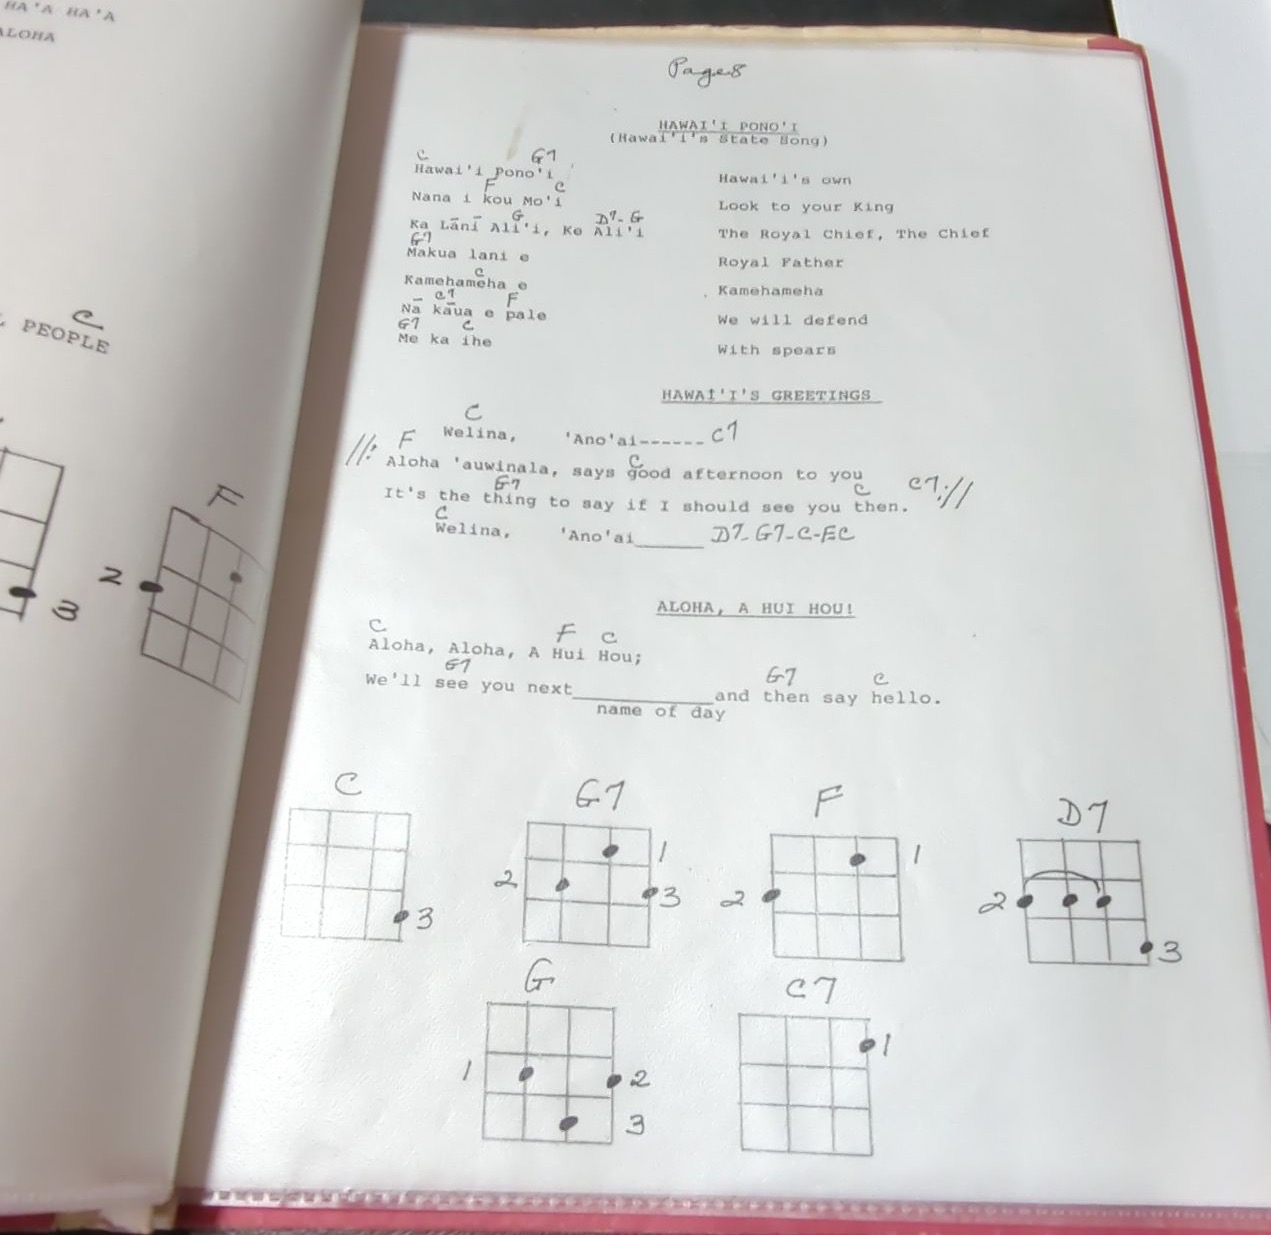 HA'A HA'A
ALOHA
C
PEOPLE
F
2
3
Page 8
HAWAI'I PONO'I
(Hawai'i's State Song)
C G7
Hawai'i pono'i Hawai'i's own
F C
Nana i kou Mo'i Look to your King
G D7-G
Ka Lānī Ali'i, Ke Ali'i The Royal Chief, The Chief
G7
Makua lani e Royal Father
C
Kamehameha e Kamehameha
C7 F
Nā kāua e pale We will defend
G7 C
Me ka ihe With spears
HAWAI'I'S GREETINGS
C
Welina, 'Ano'ai------ C7
//: F
C
Aloha 'auwinala, says good afternoon to you
G7 C C7://
It's the thing to say if I should see you then.
C
Welina, 'Ano'ai______ D7-G7-C-FC
ALOHA, A HUI HOU!
C F C
Aloha, Aloha, A Hui Hou;
G7 G7 C
We'll see you next____________and then say hello.
name of day
C G7 F D7
1 1
2 3 2 2 3
3
G C7
1 2 1
3